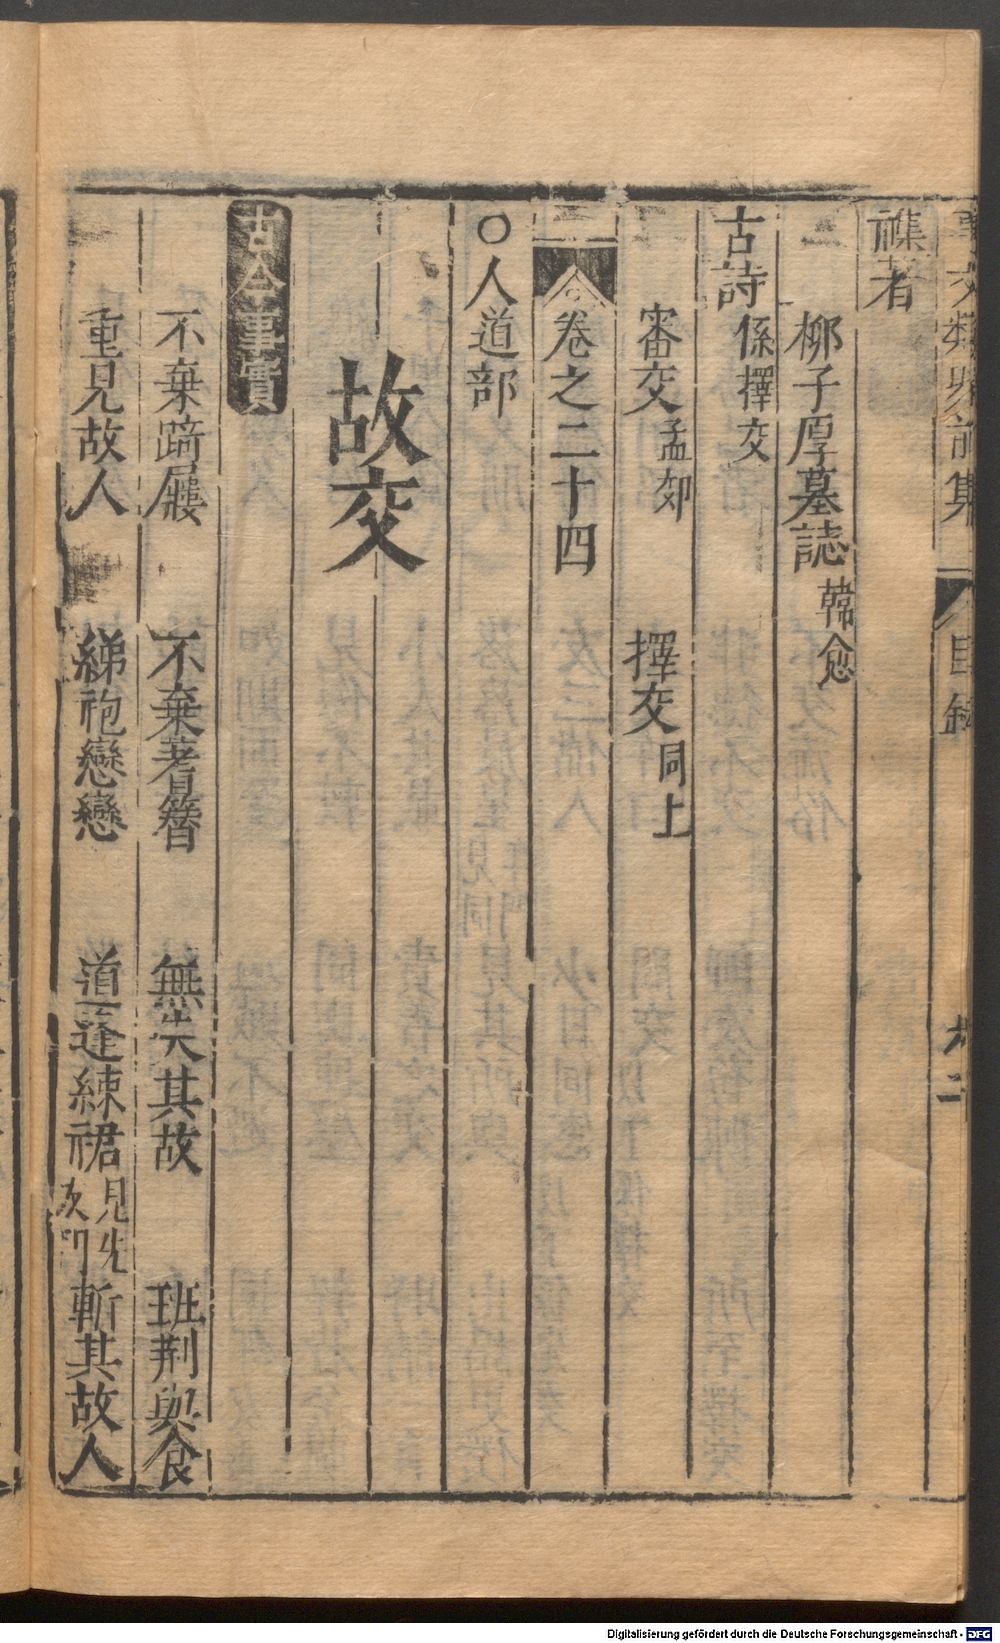 事文類聚前集
目錄
雜著
柳子厚墓誌 韓愈
古詩 係擇交
審交 孟郊 擇交 同上
卷之二十四
○人道部
故交
古今事實
不棄踦屨 不棄蓍簪 無失其故 班荆與食
重見故人 綈袍戀戀 道逢練裙 見先 斬其故人
Digitalisierung gefördert durch die Deutsche Forschungsgemeinschaft - DFG